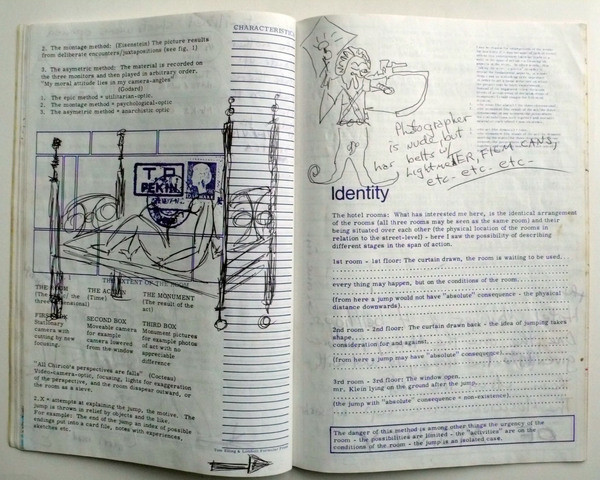 CHARACTERISTIC
2. The montage method: (Eisenstein) The picture results
from deliberate encounters/juxtapositions (see fig. 1)
3. The asymetric method: The material is recorded on
the three monitors and then played in arbitrary order.
"My moral attitude lies in my camera-angles"
(Godard)
1. The epic method = utilitarian-optic.
2. The montage method = psychological-optic
3. The asymetric method = anarchistic optic
T.P.
PEKIN
THE EXTENT OF THE ROOM
THE ROOM
(The
THE
(Time)
THE MONUMENT
(The result of the
act)
BOX
Stationary
camera with
cutting by new
focusing.
SECOND BOX
Moveable camera
for example
camera lowered
from the window
THIRD BOX
Monument pictures
for example photos
of act with no
appreciable
difference
"All Chirico's perspectives are falls" (Cocteau)
Video-camera-optic, focusing, lights for exaggeration
of the perspective, and the room disapear outward, or
the room as a sieve.
attempts at explaining the jump, the motive. The
jump is thrown in relief by objects and the like.
For example: The end of the jump an index of possible
endings put into a card file, notes with experiences,
sketches etc.
Photographer
is nude but
has belts w/
LightmeTER, FILM CANS,
etc- etc- etc-
Identity
The hotel rooms: What has interested me here, is the identical arrangement
of the rooms (all three rooms may be seen as the same room) and their
being situated over each other (the physical location of the rooms in
relation to the street-level) - here I saw the possibility of describing
different stages in the span of action.
1st room - 1st floor: The curtain drawn, the room is waiting to be used...
every thing may happen, but on the conditions of the room
(from here a jump would not have "absolute" consequence - the physical
distance downwards)
2nd room - 2nd floor: The curtain drawn back - the idea of jumping takes
shape
consideration for and against
(from here a jump may have "absolute" consequence
3rd room - 3rd floor: The window open
mr. Klein lying on the ground after the jump
(the jump with "absolute" consequence = non-existence)
The danger of this method is among other things the urgency of the
room - the possibilities are limited - the "activities" are on the
conditions of the room - the jump is an isolated case.